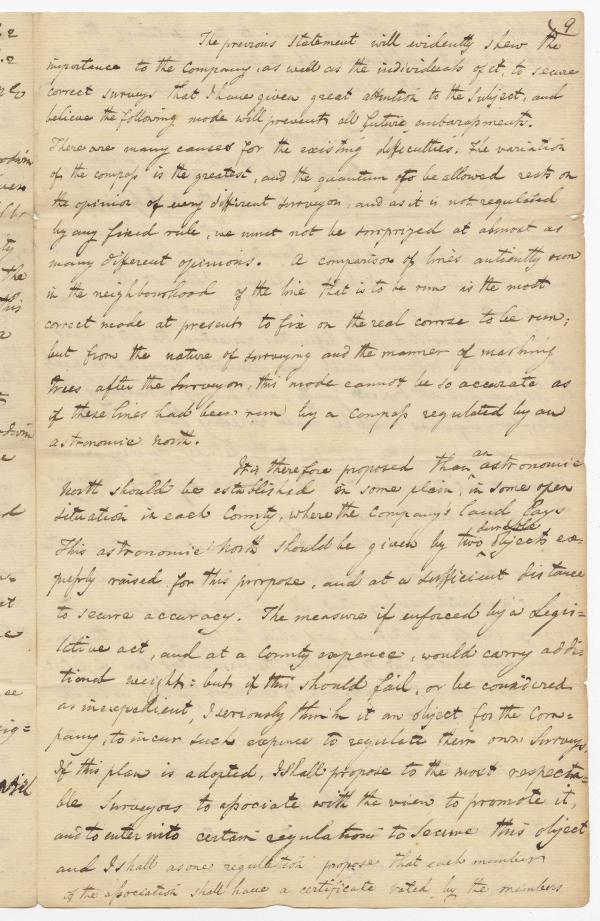 9
The previous Statement will evidently shew the
importance to the Company, as well as the individuals of it, to secure
correct surveys that I have given great attention to the Subject, and
believe the following mode will prevent all future embarasments.
There are many causes for the existing difficulties: The variation
of the compass is the greatest, and the quantum to be allowed rests on
the opinion of every different surveyor, and as it is not regulated
by any fixed rule, we must not be surprized at almost as
many different opinions. A comparison of lines antiently run
in the neighbourhood of the line that is to be run is the most
correct mode at present to fix on the real course to be run;
but from the nature of surveying and the manner of marking
trees after the Surveyor, this mode cannot be so accurate as
if these lines had been run by a compass regulated by an
astronomic North.
It is therefore proposed that an astronomic
North should be established in some plain, in some open
situation in each County, where the Company's land lays
This astronomic North should be given by two durable objects ex=
pressly raised for this purpose, and at a sufficient distance
to secure accuracy. The measure if enforced by a Legis=
lative act, and at a County expence, would carry addi=
tional weight: but if this should fail, or be considered
as inexpedient, I seriously think it an object for the Com=
pany, to incur such expence to regulate their own Surveys.
If this plan is adopted, I shall propose to the most respecta=
ble Surveyors to associate with the view to promote it,
and to enter into certain regulations to Secure this object
and I shall as one regulation propose that each member
of the association shall have a certificate voted by the members